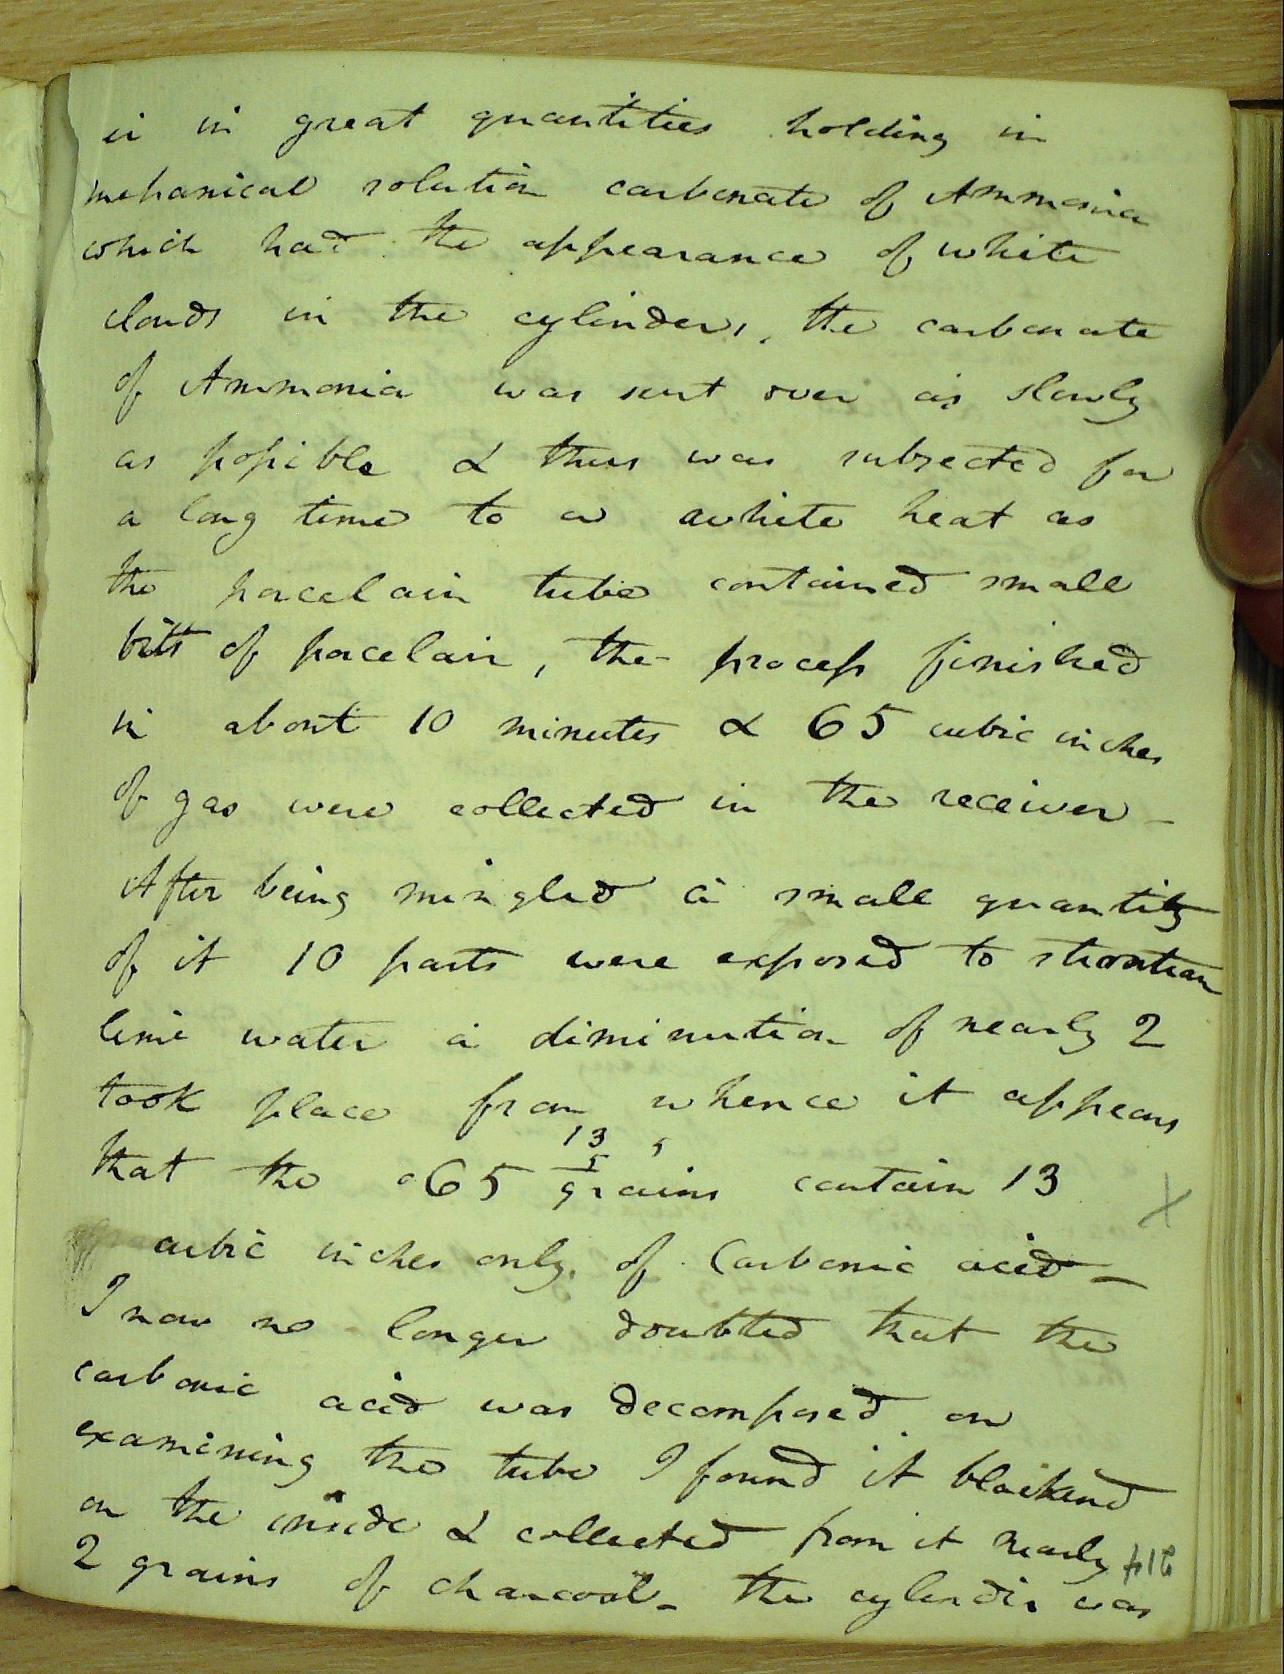 in in great quantities holding in
mehanical solution carbonate of Ammonia
which had the appearance of white
clouds in the cylinders, the carbonate
of Ammonia was sent over as slowly
as possible & thus was subjected for
a long time to a white heat as
the porcelain tube contained small
bits of porcelain, the process finished
in about 10 minutes & 65 cubic inches
of gas were collected in the receiver _
After being mingled a small quantity
of it 10 parts were exposed to strontian
lime water a diminution of nearly 2
took place from whence it appears
13 5
5
that the 65 grains contain 13
cubic inches only, of Carbonic acid _
I now no longer doubted that the
carbonic acid was decomposed on
examining the tube I found it blackend
on the inside & collected from it nearly
214
2 grains of charcoal _ the cylinder was